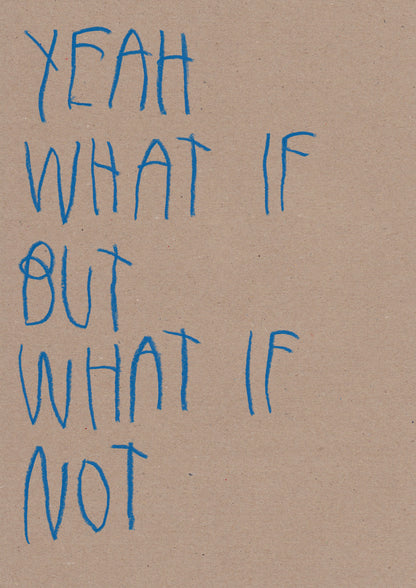 YEAH
WHAT IF
BUT
WHAT IF
NOT